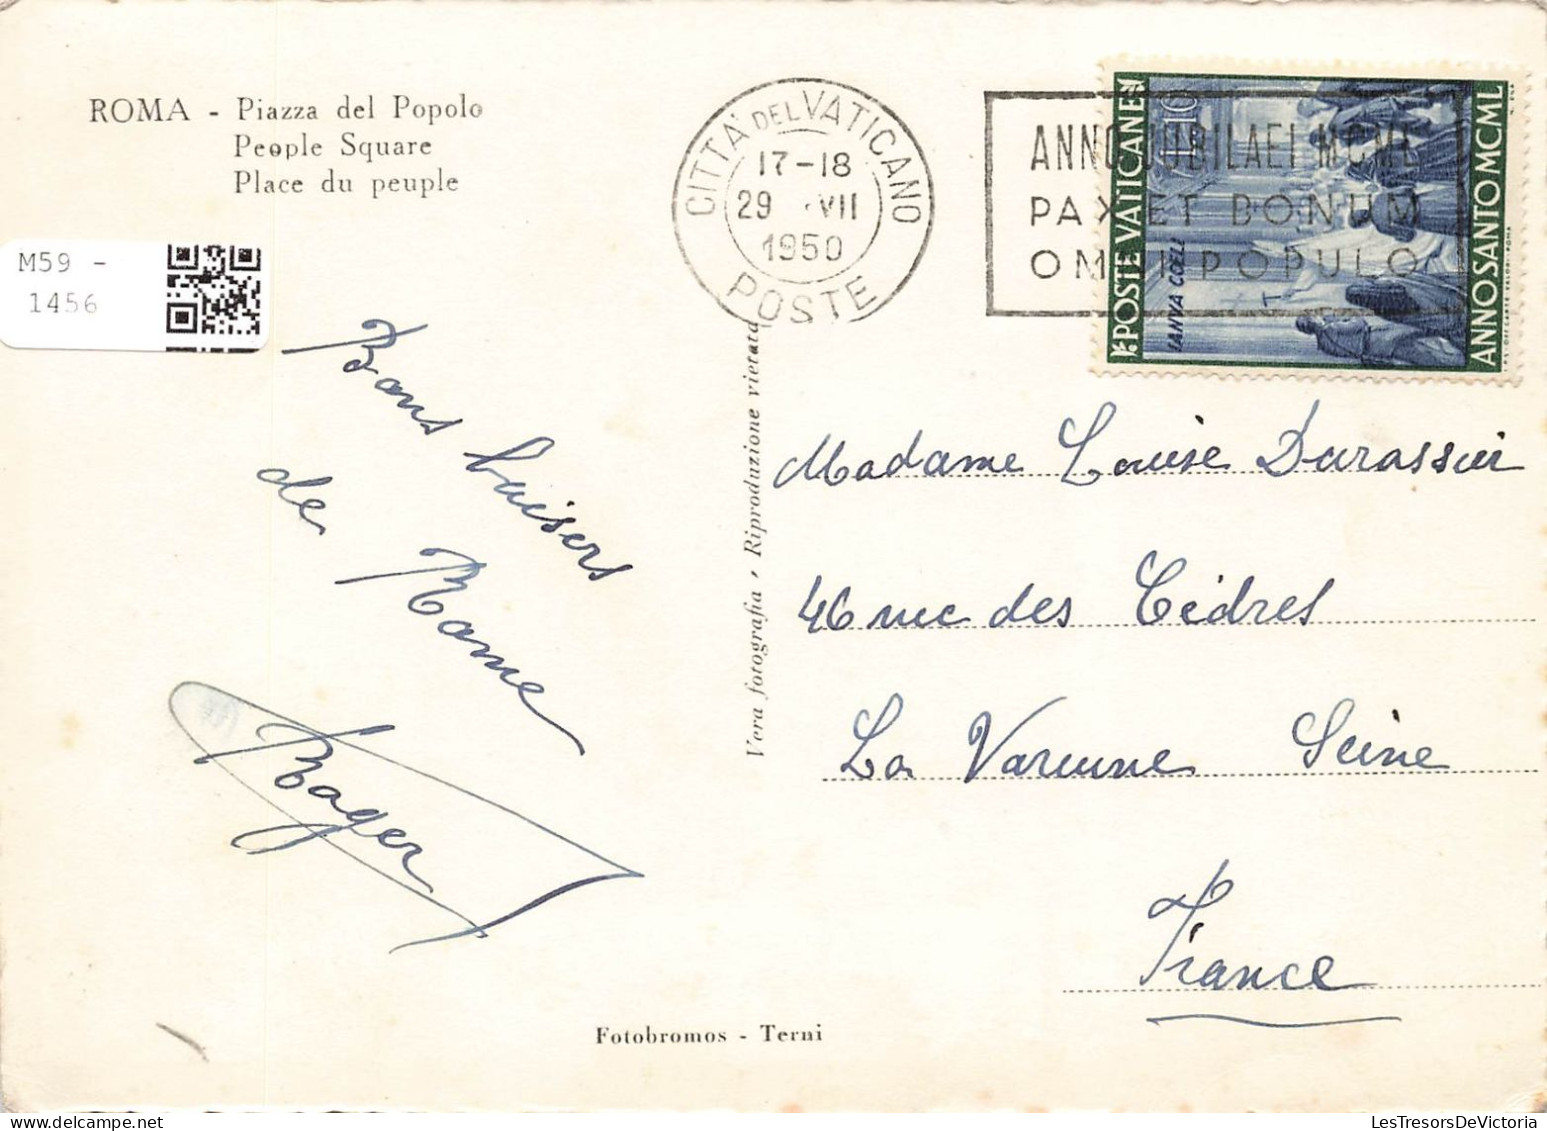 ROMA - Piazza del Popolo
People Square
Place du peuple
M59 -
1456
CITTÀ DEL VATICANO
17-18
29 VII
1950
POSTE
ANNO JUBILAEI MCML
PAX ET BONUM
OMNI POPULO
POSTE VATICANE
£10
IANVA COELI
ANNO SANTO MCML
Bons baisers
de Rome
Roger
Vera fotografia - Riproduzione vietata
Madame Louise Darassier
46 rue des Cèdres
La Varenne Seine
France
Fotobromos - Terni
LesTresorsDeVictoria